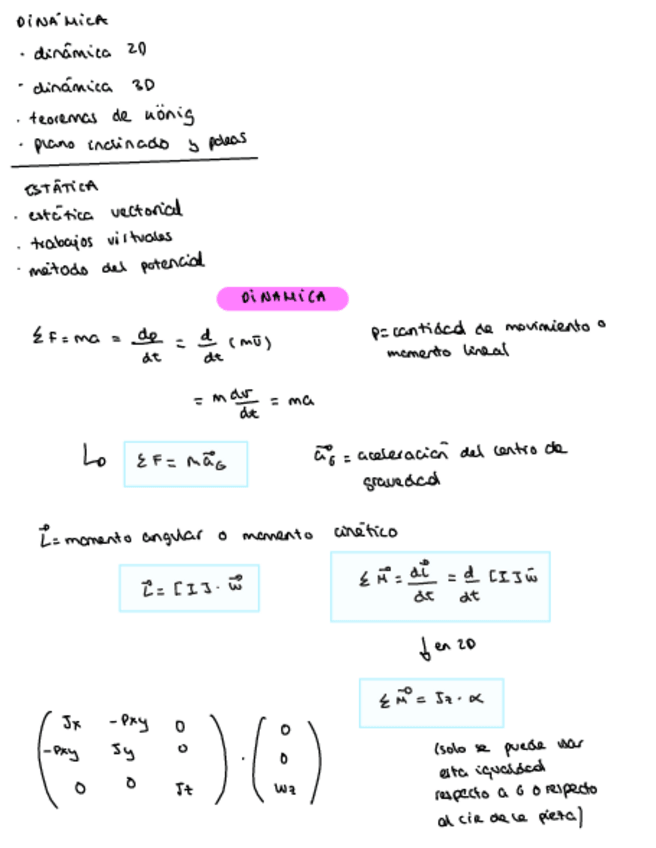 DINÁMICA
· dinámica 2D
· dinámica 3D
· teoremas de könig
· plano inclinado y poleas
ESTÁTICA
· estática vectorial
· trabajos virtuales
· método del potencial
DINAMICA
ΣF = ma = dp/dt = d/dt (mv̄)
= m dv/dt = ma
p = cantidad de movimiento o
momento lineal
↳ ΣF = m a⃗_G
a⃗_G = aceleración del centro de
gravedad
L⃗ = momento angular o momento cinético
L⃗ = [I] · ω⃗
ΣM⃗ = dL⃗/dt = d/dt [I] ω̄
↓ en 2D
ΣM⃗ = Jz · α
(solo se puede usar
esta igualdad
respecto a G o respecto
al cir de la pieza)
Jx -Pxy 0
-Pxy Jy 0
0 0 Jz
·
0
0
wz